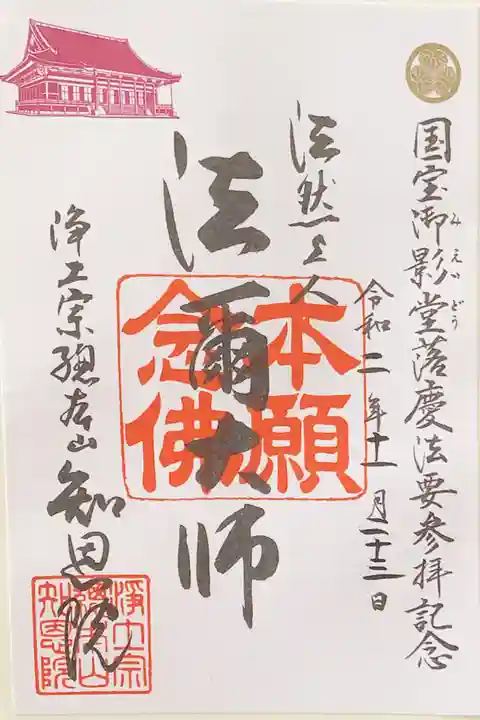 国宝御影堂落慶法要参拝記念
みえいどう
令和二年十一月二十三日
法然上人
法爾大師
本願
念佛
浄土宗総本山知恩院
浄土宗
総本山
知恩院